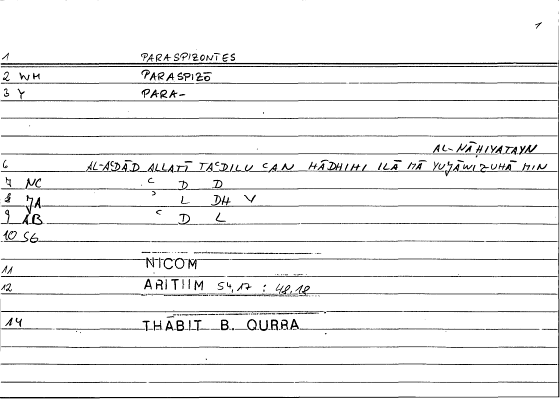 1
1 PARASPIZONTES
2 WH PARASPIZŌ
3 Y PARA-
AL-NĀḤIYATAYN
6 AL-AʿDĀD ALLATĪ TAʿDILU ʿAN HĀDHIHI ILĀ MĀ YUJĀWIZUHĀ MIN
7 NC ʿ D D
8 JA ʾ L DH Y
9 AB ʿ D L
10 SG
NICOM
11
12 ARITIIM 54,17 : 48,18
14 THABIT B. QURRA